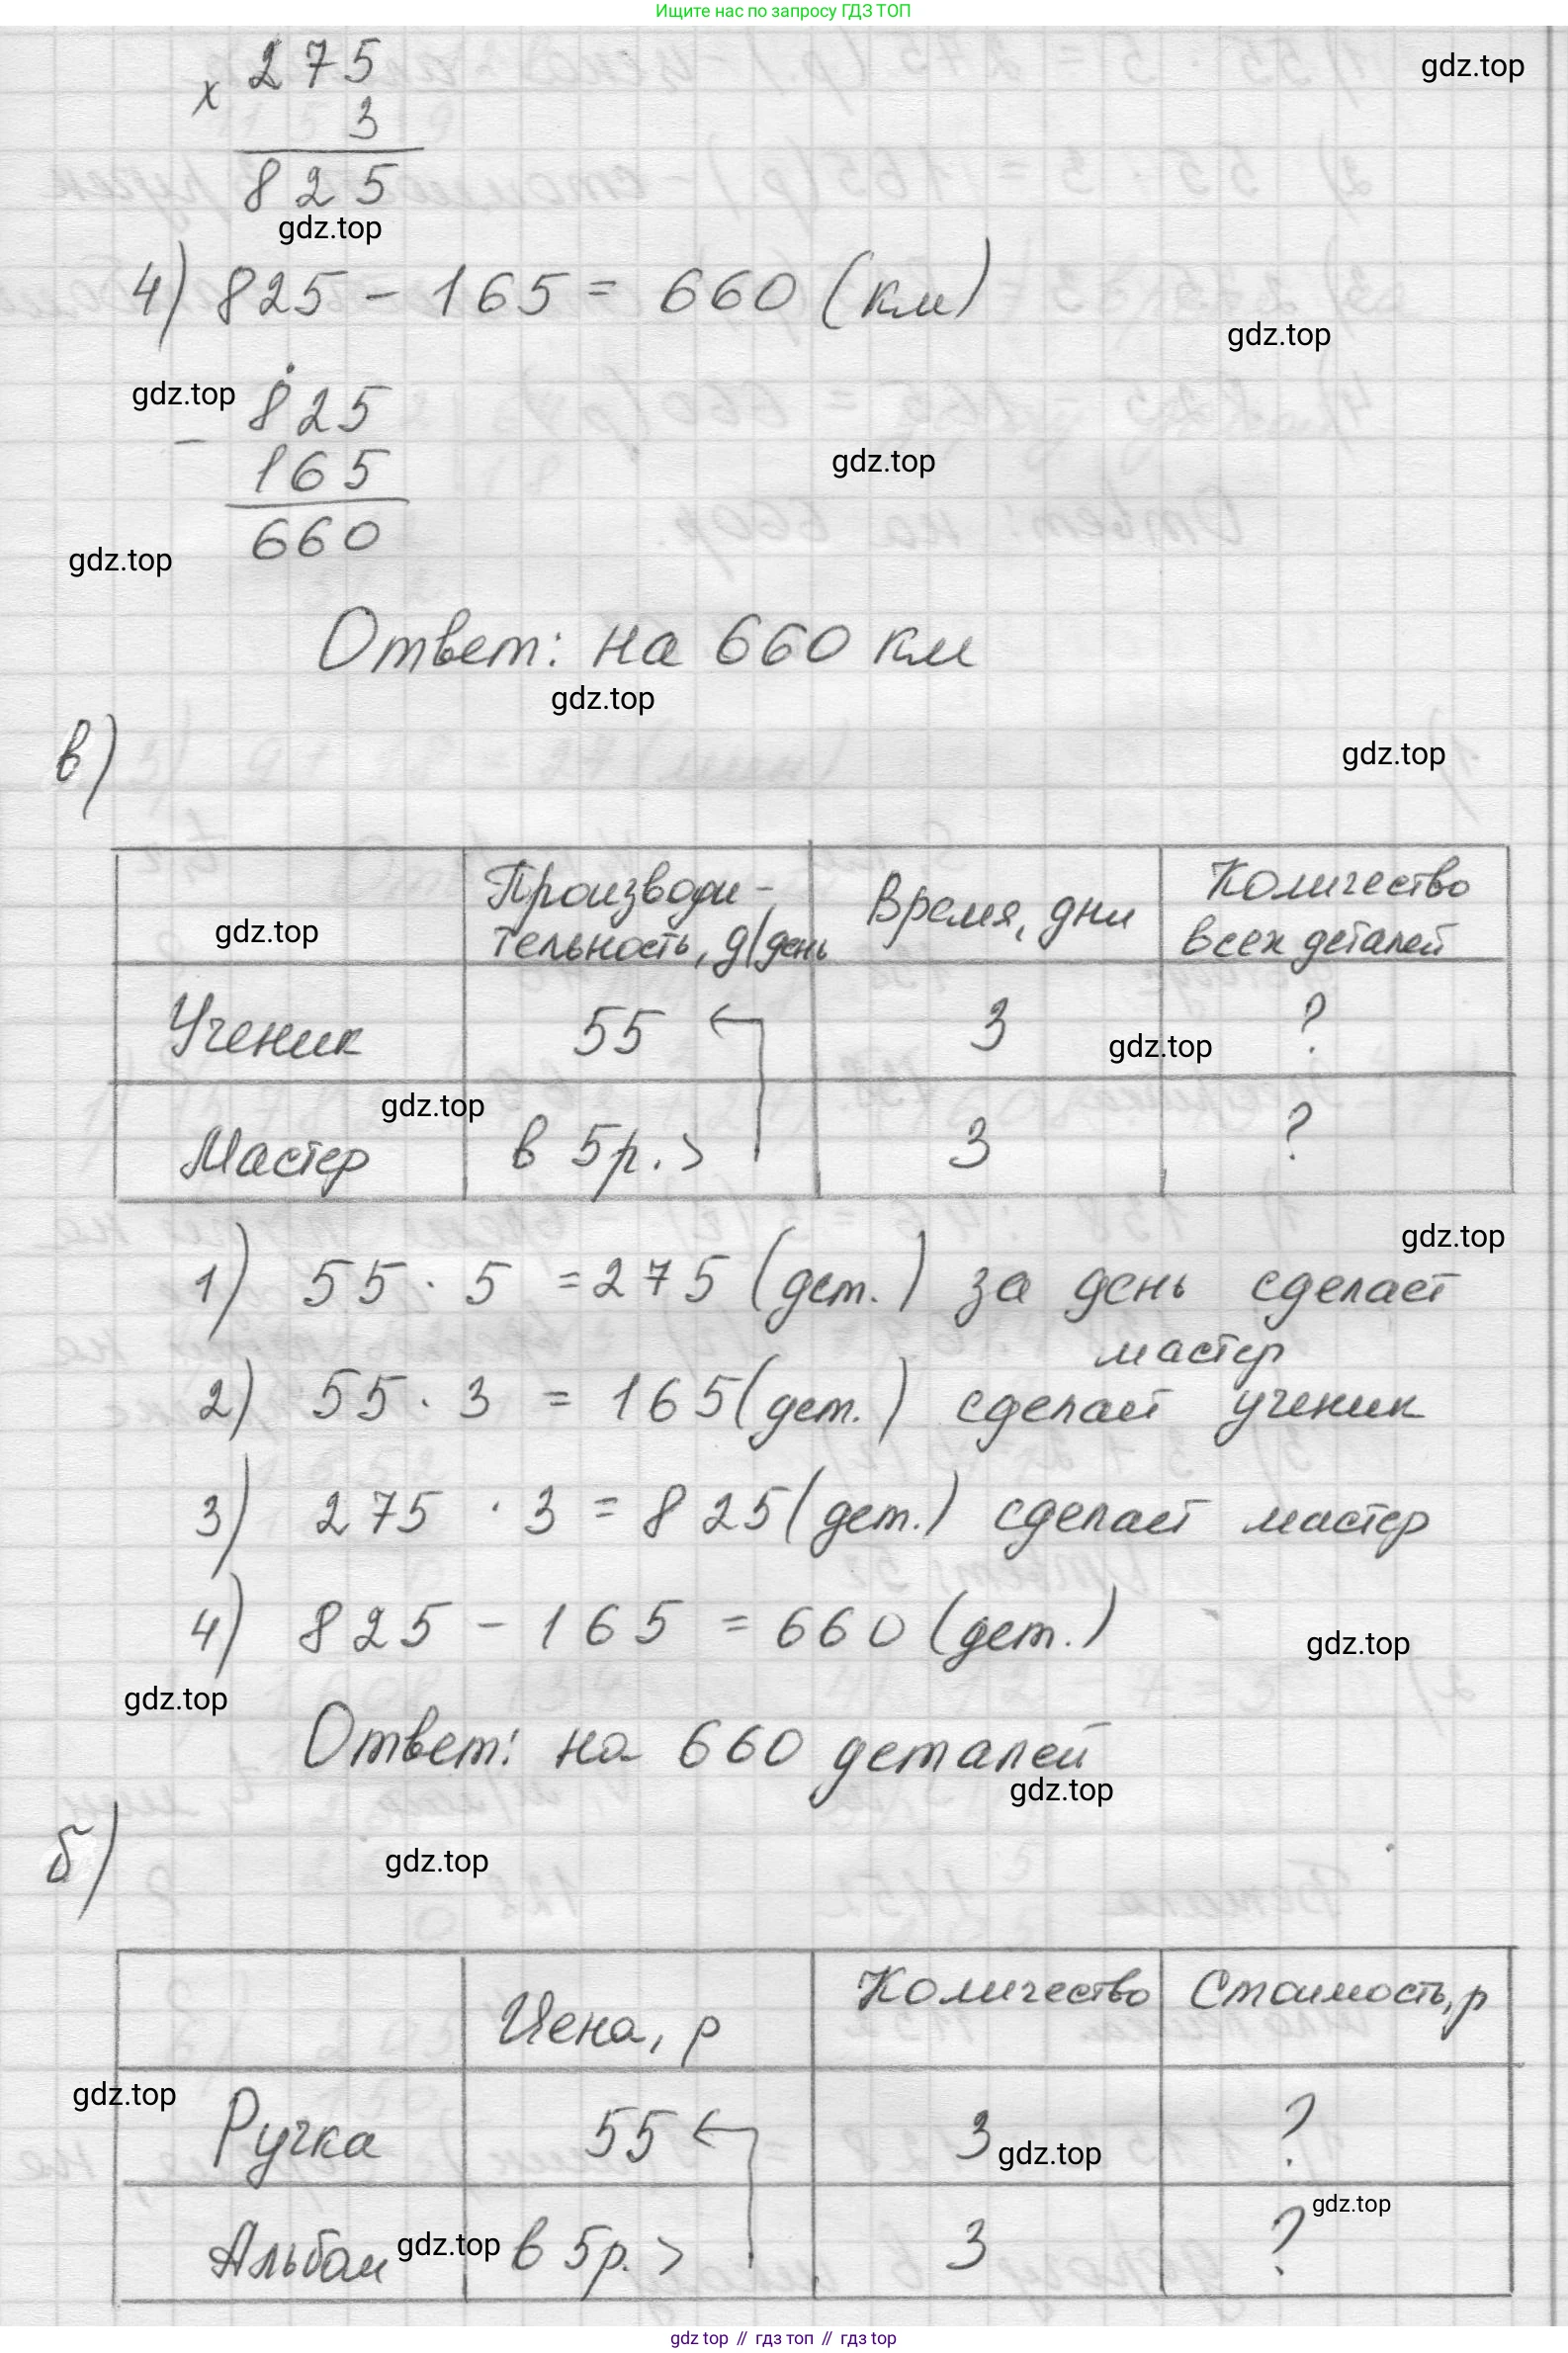 Ищите нас по запросу ГДЗ ТОП
gdz.top
х 275
3
825
gdz.top
4) 825 - 165 = 660 (км)
gdz.top
gdz.top
- 825
165
660
gdz.top
gdz.top
Ответ: на 660 км
gdz.top
в)
gdz.top
Производи-
тельность, д/день
Время, дни
Количество
всех деталей
gdz.top
Ученик 55 3 ?
gdz.top
gdz.top
Мастер в 5р. > 3 ?
gdz.top
1) 55 · 5 = 275 (дет.) за день сделает
мастер
2) 55 · 3 = 165 (дет.) сделает ученик
3) 275 · 3 = 825 (дет.) сделает мастер
4) 825 - 165 = 660 (дет.)
gdz.top
gdz.top
Ответ: на 660 деталей
gdz.top
б)
gdz.top
Цена, р Количество Стоимость, р
gdz.top
Ручка 55 3 ?
gdz.top
gdz.top
Альбом в 5р. > 3 ?
gdz.top
gdz top // гдз топ // гдз top